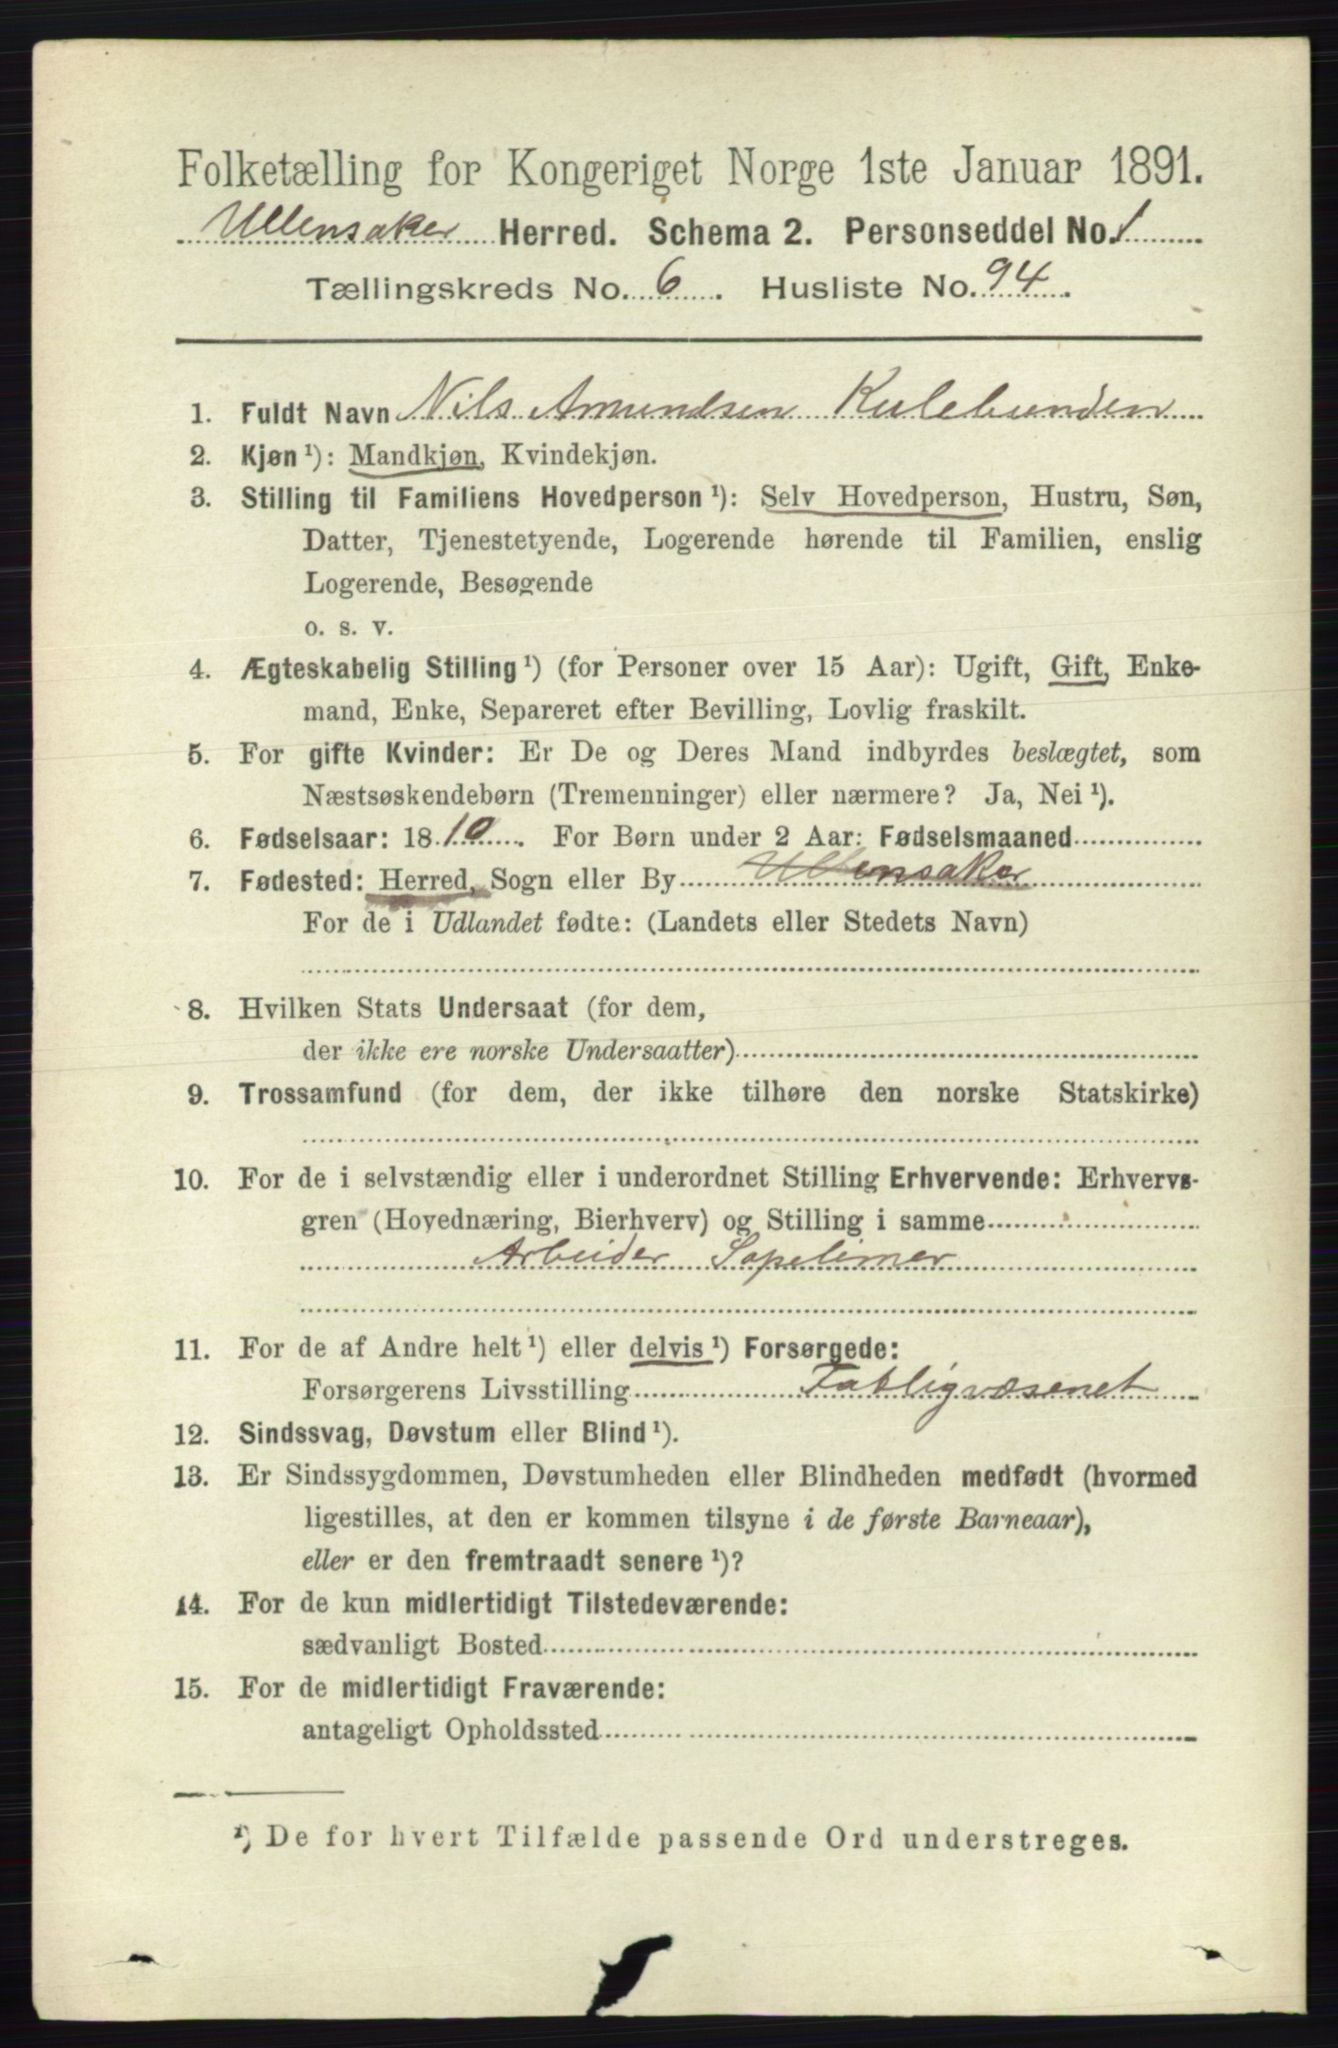 Folketælling for Kongeriget Norge 1ste Januar 1891.
Ullensaker Herred. Schema 2. Personseddel No. 1
Tællingskreds No. 6. Husliste No. 94.
1. Fuldt Navn Nils Amundsen Kulebunden
2. Kjøn ¹): Mandkjøn, Kvindekjøn.
3. Stilling til Familiens Hovedperson ¹): Selv Hovedperson, Hustru, Søn,
Datter, Tjenestetyende, Logerende hørende til Familien, enslig
Logerende, Besøgende
o. s. v.
4. Ægteskabelig Stilling ¹) (for Personer over 15 Aar): Ugift, Gift, Enke-
mand, Enke, Separeret efter Bevilling, Lovlig fraskilt.
5. For gifte Kvinder: Er De og Deres Mand indbyrdes beslægtet, som
Næstsøskendebørn (Tremenninger) eller nærmere? Ja, Nei ¹).
6. Fødselsaar: 1810. For Børn under 2 Aar: Fødselsmaaned
7. Fødested: Herred, Sogn eller By Ullensaker
For de i Udlandet fødte: (Landets eller Stedets Navn)
8. Hvilken Stats Undersaat (for dem,
der ikke ere norske Undersaatter)
9. Trossamfund (for dem, der ikke tilhøre den norske Statskirke)
10. For de i selvstændig eller i underordnet Stilling Erhvervende: Erhvervs-
gren (Hovednæring, Bierhverv) og Stilling i samme
Arbeider
11. For de af Andre helt ¹) eller delvis ¹) Forsørgede:
Forsørgerens Livsstilling Fattigvæsenet
12. Sindssvag, Døvstum eller Blind ¹).
13. Er Sindssygdommen, Døvstumheden eller Blindheden medfødt (hvormed
ligestilles, at den er kommen tilsyne i de første Barneaar),
eller er den fremtraadt senere ¹)?
14. For de kun midlertidigt Tilstedeværende:
sædvanligt Bosted
15. For de midlertidigt Fraværende:
antageligt Opholdssted
¹) De for hvert Tilfælde passende Ord understreges.